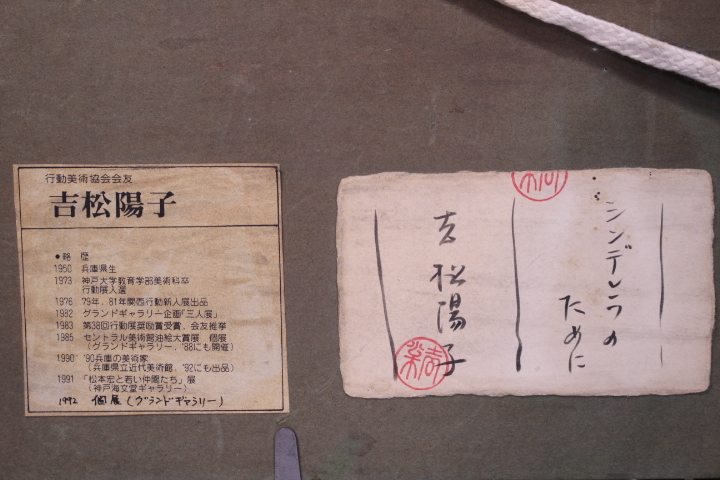 行動美術協会会友
吉松陽子
●略 歴
1950 兵庫県生
1973 神戸大学教育学部美術科卒
行動展入選
1976 79年、81年関西行動新人展出品
1982 グランドギャラリー企画「三人展」
1983 第38回行動展奨励賞受賞、会友推挙
1985 セントラル美術館油絵大賞展、個展
(グランドギャラリー、'88にも開催)
1990 '90兵庫の美術家
(兵庫県立近代美術館、'92にも出品)
1991 「松本宏と若い仲間たち」展
(神戸海文堂ギャラリー)
1992 個展(グランドギャラリー)
シンデレラの
ために
吉松陽子